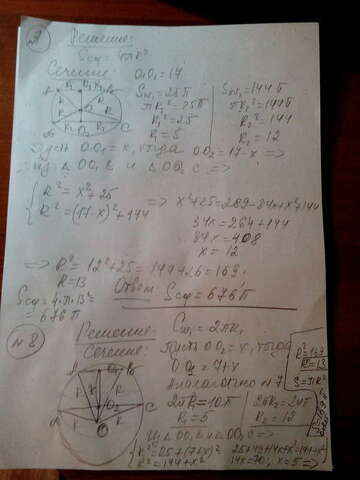 7
Решение:
Sсф = 4πR²
Сечение: O₁O₂ = 17
Sш₁ = 25π
πR₁² = 25π
R₁² = 25
R₁ = 5
R₂² = 144
R₂ = 12
Пусть OO₁ = x, тогда OO₂ = 17-x =>
из △OO₁B и △OO₂C =>
R² = x² + 25
R² = (17-x)² + 144
=> x² + 25 = 289 - 34x + x² + 144
34x = 264 + 144
34x = 408
x = 12
=> R² = 12² + 25 = 144 + 25 = 169
R = 13
Sсф = 4·π·13² =
= 676π
Ответ: Sсф = 676π
№8
Решение: Cш₁ = 2πR₁
Сечение: Пусть OO₂ = x, тогда
OO₁ = 7+x
Аналогично №7
2πR₁ = 10π
R₁ = 5
2πR₂ = 24π
R₂ = 12
Из △OO₁B и △OO₂C =>
R² = 25 + (7+x)²
R² = 144 + x²
25 + 49 + 14x + x² = 144 + x²
14x = 70, x = 5 =>
R² = 169
R = 13